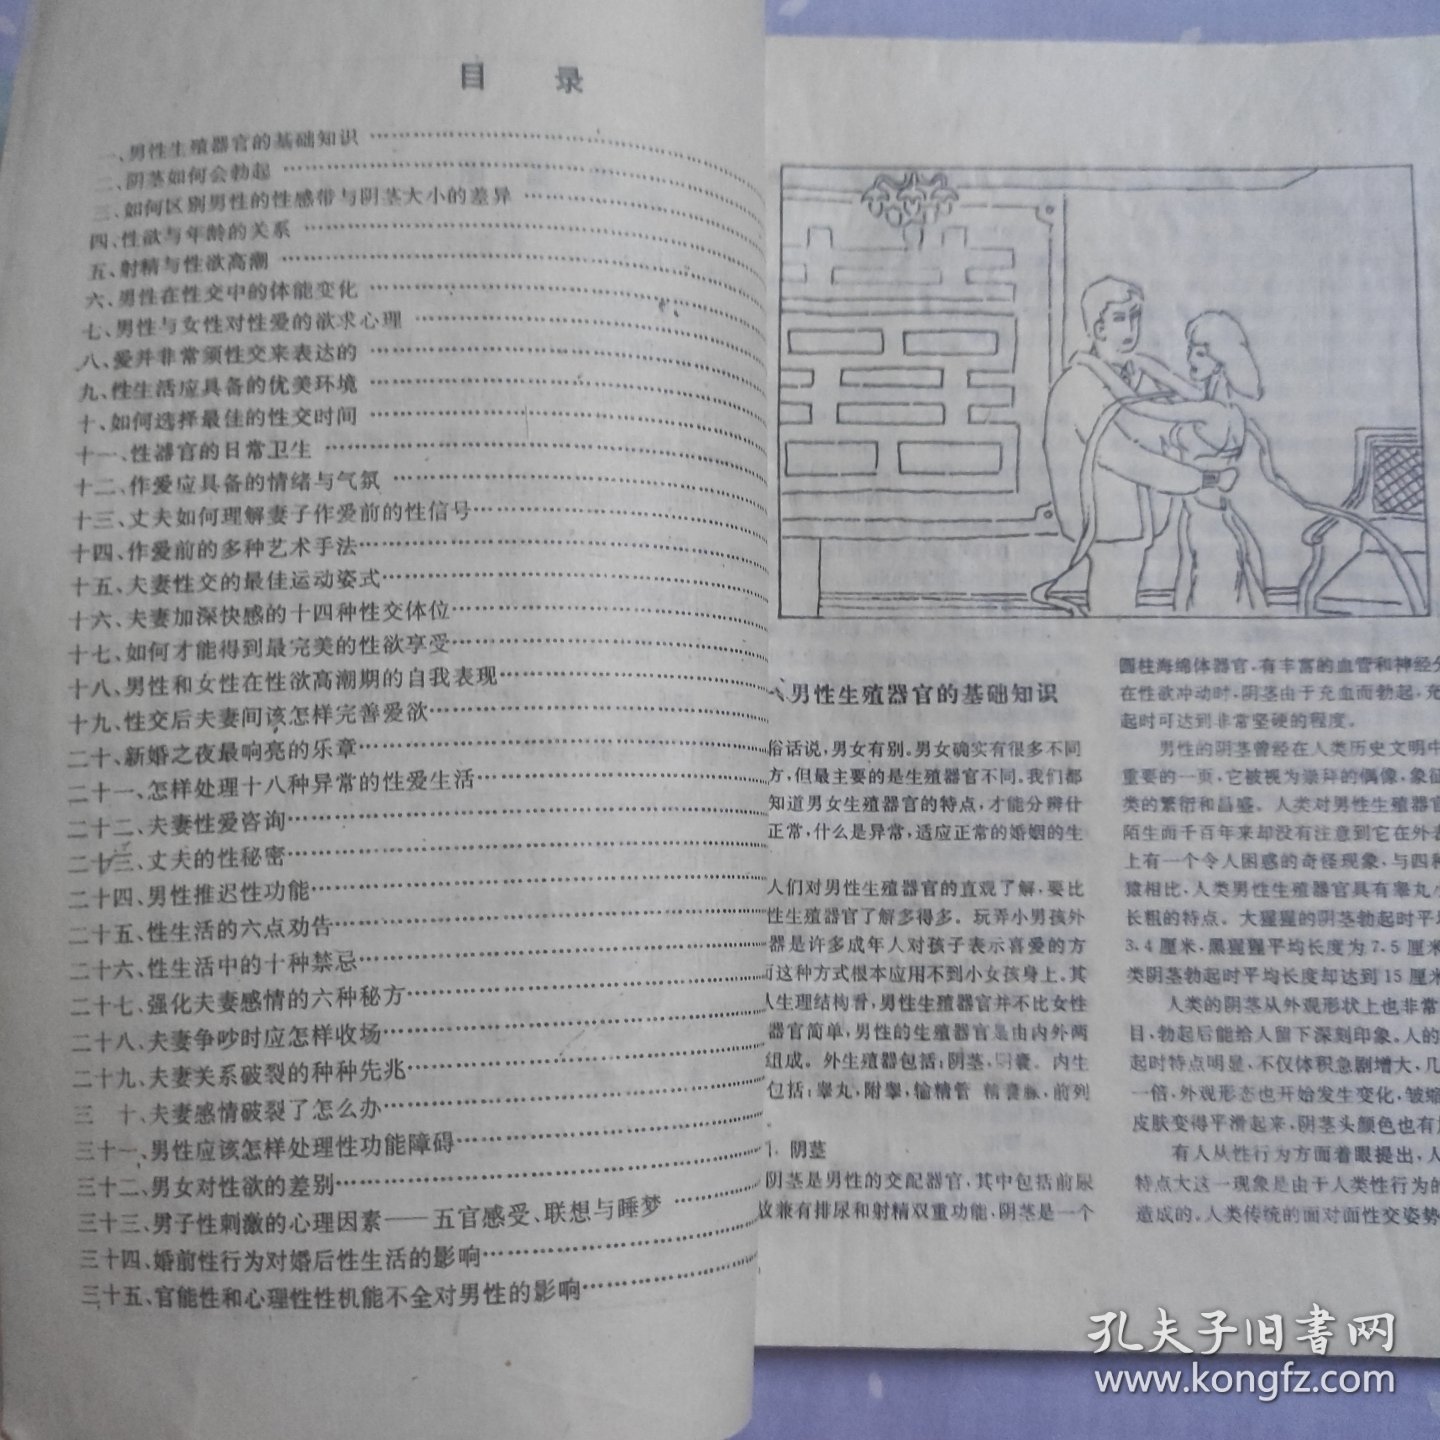 目 录
一、男性生殖器官的基础知识
二、阴茎如何会勃起
三、如何区别男性的性感带与阴茎大小的差异
四、性欲与年龄的关系
五、射精与性欲高潮
六、男性在性交中的体能变化
七、男性与女性对性爱的欲求心理
八、爱并非常须性交来表达的
九、性生活应具备的优美环境
十、如何选择最佳的性交时间
十一、性器官的日常卫生
十二、作爱应具备的情绪与气氛
十三、丈夫如何理解妻子作爱前的性信号
十四、作爱前的多种艺术手法
十五、夫妻性交的最佳运动姿式
十六、夫妻加深快感的十四种性交体位
十七、如何才能得到最完美的性欲享受
十八、男性和女性在性欲高潮期的自我表现
十九、性交后夫妻间该怎样完善爱欲
二十、新婚之夜最响亮的乐章
二十一、怎样处理十八种异常的性爱生活
二十二、夫妻性爱咨询
二十三、丈夫的性秘密
二十四、男性推迟性功能
二十五、性生活的六点劝告
二十六、性生活中的十种禁忌
二十七、强化夫妻感情的六种秘方
二十八、夫妻争吵时应怎样收场
二十九、夫妻关系破裂的种种先兆
三 十、夫妻感情破裂了怎么办
三十一、男性应该怎样处理性功能障碍
三十二、男女对性欲的差别
三十三、男子性刺激的心理因素——五官感受、联想与睡梦
三十四、婚前性行为对婚后性生活的影响
三十五、官能性和心理性性机能不全对男性的影响
男性生殖器官的基础知识
俗话说，男女有别。男女确实有很多不同
方，但最主要的是生殖器官不同。我们都
知道男女生殖器官的特点，才能分辨什
正常，什么是异常，适应正常的婚姻的生
人们对男性生殖器官的直观了解，要比
性生殖器官了解多得多。玩弄小男孩外
器是许多成年人对孩子表示喜爱的方
这种方式根本应用不到小女孩身上。其
生理结构看，男性生殖器官并不比女性
器官简单，男性的生殖器官是由内外两
组成。外生殖器包括：阴茎，阴囊。内生
包括：睾丸，附睾，输精管 精囊腺，前列
1. 阴茎
阴茎是男性的交配器官，其中包括前尿
故兼有排尿和射精双重功能，阴茎是一个
圆柱海绵体器官，有丰富的血管和神经分
在性欲冲动时，阴茎由于充血而勃起，充
起时可达到非常坚硬的程度。
男性的阴茎曾经在人类历史文明中
重要的一页，它被视为崇拜的偶像，象征
类的繁衍和昌盛。人类对男性生殖器官
陌生而千百年来却没有注意到它在外表
上有一个令人困惑的奇怪现象，与四种
猿相比，人类男性生殖器官具有睾丸小
长粗的特点。大猩猩的阴茎勃起时平均
3.4厘米，黑猩猩平均长度为7.5厘米
类阴茎勃起时平均长度却达到15厘米
人类的阴茎从外观形状上也非常
目，勃起后能给人留下深刻印象。人的
起时特点明显，不仅体积急剧增大，几
一倍，外观形态也开始发生变化，皱缩
皮肤变得平滑起来，阴茎头颜色也有
有人从性行为方面着眼提出，人
特点大这一现象是由于人类性行为的
造成的。人类传统的面对面性交姿势
孔夫子旧书网
www.kongfz.com